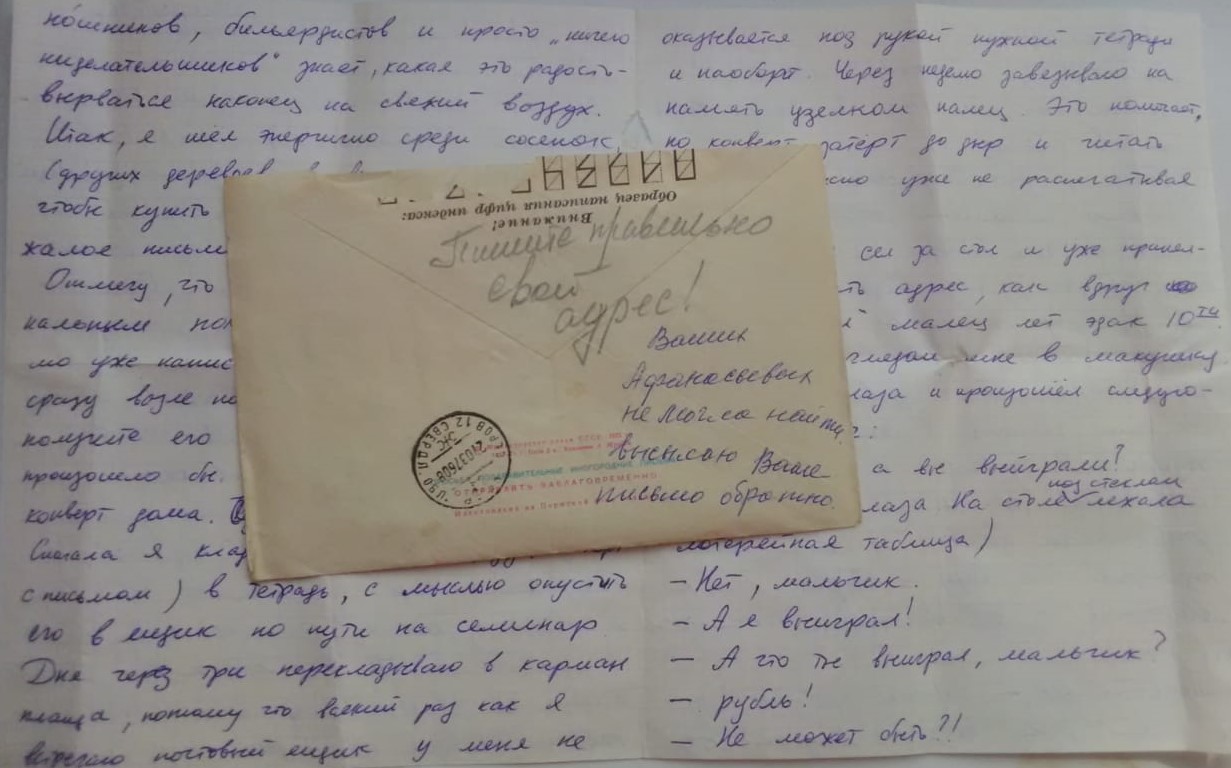 ношников, бильярдистов и просто „ничего
ниделательшиков" знает, какая это радость -
вырваться наконец на свежий воздух.
Итак, я шёл энергично среди сосенок,
(других деревьев
чтобы купить
жалое письм
Отмечу, что
мо уже напис
сразу возле по
получите его
произошло бы.
конверт дома.
Сначала я клад
с письмом) в тетрадь, с мыслью опустить
его в ящик по пути на семинар
Дня через три перекладываю в карман
плаща, потому что всякий раз как я
встречаю почтовый ящик у меня не
оказывается под рукой нужной тетради
и наоборот. Через неделю завязываю на
память узелком палец. Это помогает,
но конверт затёрт до дыр и читать
уже не распечатывая
сел за стол и уже принял-
ть адрес, как вдруг
малец лет эдак 10ти
мне в макушку
лаза и произошёл следую-
а вы выиграли?
под стеклом
лаза На столе лежала
лотерейная таблица)
- Нет, мальчик.
- А я выиграл!
- А что ты выиграл, мальчик?
- рубль!
- Не может быть?!
Внимание!
Образец написания цифр индекса:
Пишите правильно
свой
адрес!
Ваших
Афанасьевых
не могла найти.
высылаю Ваше
письмо обратно.
ОТПРАВЛЯТЬ ЗАБЛАГОВРЕМЕННО